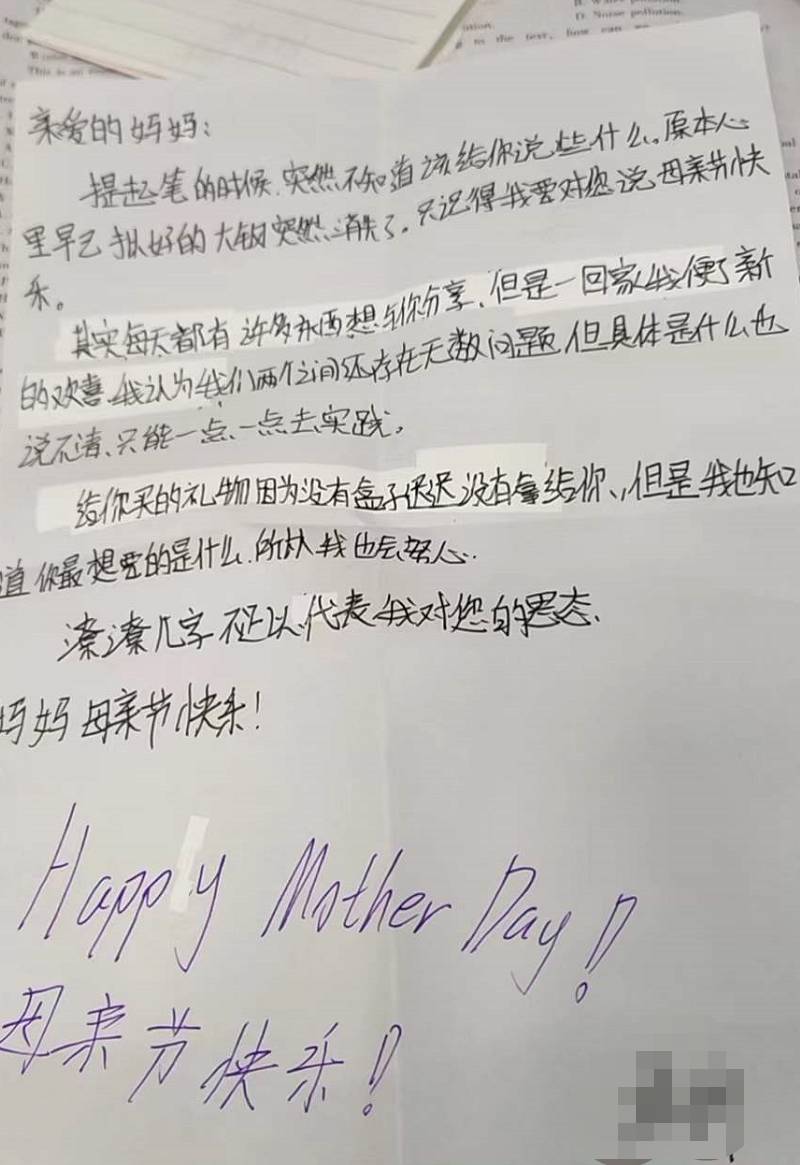 B. Water pollution.
D. Noise pollution.
to the text, how can we
This is an
亲爱的妈妈：
提起笔的时候，突然不知道该给你说些什么。原本心
里早已拟好的大纲突然消失了。只记得我要对您说母亲节快
乐。
其实每天都有许多东西想与你分享，但是一回家我便了新
的欢喜，我认为我们两个之间还存在无数问题，但具体是什么也
说不清、只能一点、一点去实践，
给你买的礼物因为没有盒子迟迟没有拿给你、，但是我也知
道你最想要的是什么，所以我也会努心.
潦潦几字不足以代表我对您的思态、
妈妈母亲节快乐！
Happy Mother Day！
母亲节快乐！